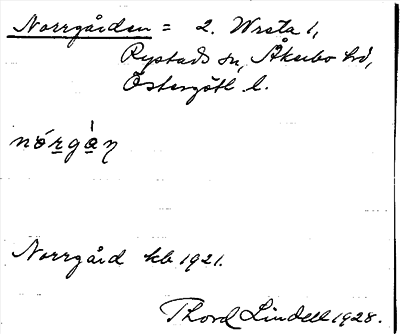 Norrgården = 2. Wrsta 1,
Rystads sn, Åkerbo hd,
Östergötl l.
nórgàn
Norrgård kb 1921.
Thord Lindell 1928.